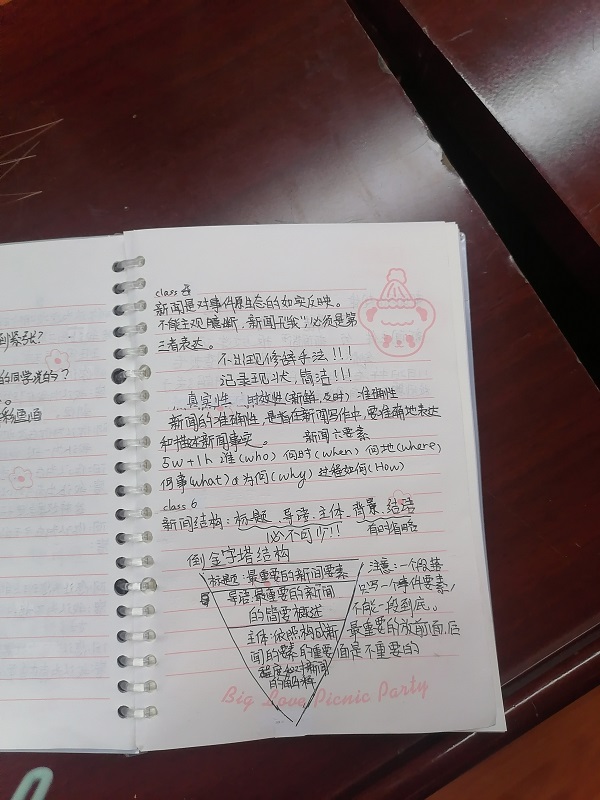 到紧张?
的同学说的?
class 5
新闻是对事件原生态的如实反映。
不能主观臆断,新闻不说"我",必须是第
三者表达。
不出现修辞手法!!!
记录现状,简洁!!!
真实性 时效性(新鲜,及时) 准确性
新闻的准确性,是指在新闻写作中,要准确地表达
和描述新闻事实。 新闻六要素
5w+1h 谁(who) 何时(when) 何地(where)
何事(what) 为何(why) 过程如何(How)
class 6
新闻结构:标题、导语、主体、背景、结语
必不可少!! 有时省略
倒金字塔结构
标题:最重要的新闻要素
导语:最重要的新闻
的简要概述
主体:依照构成新
闻的要素的重要
程度和对新闻
的解释
注意:一个段落
只写一个事件要素,
不能一段到底。
最重要的放前面,后
面是不重要的
Big Love Picnic Party